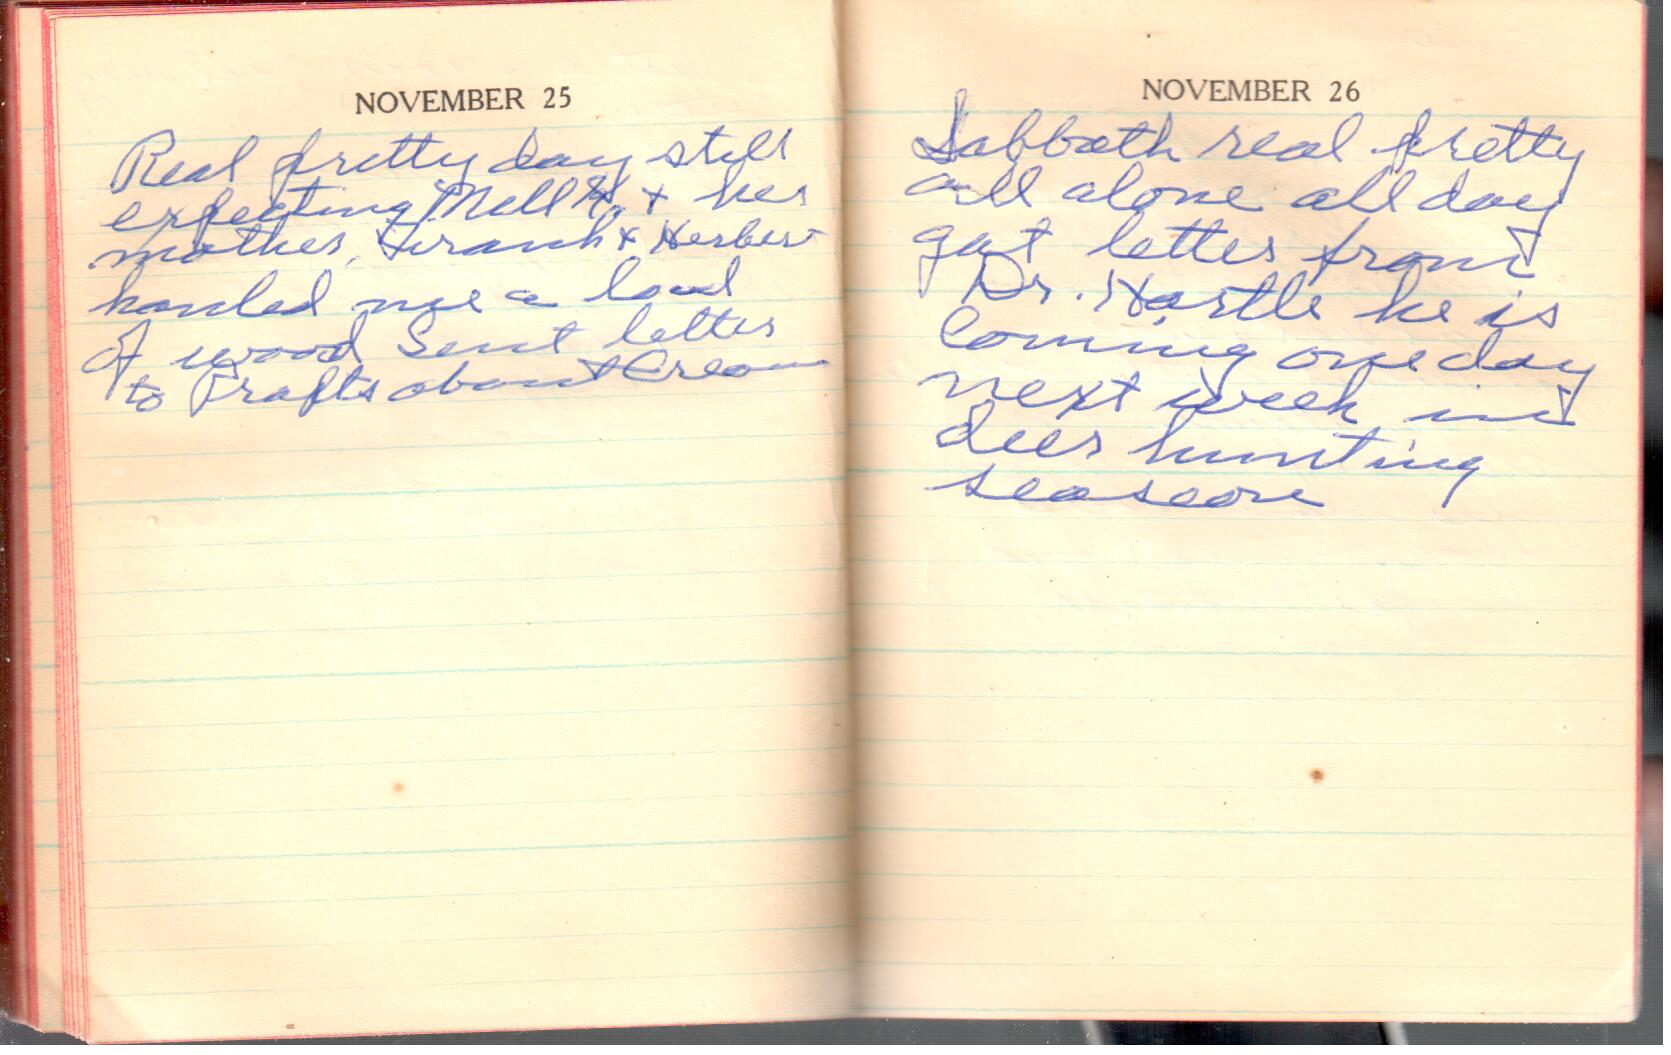 NOVEMBER 25
Real pretty day still
expecting Nell H. + her
mother, + Herbert
hauled me a load
of wood Sent letter
to Krafts about Cream
NOVEMBER 26
Sabbath real pretty
all alone all day
got letter from
Dr. Hartle he is
Coming one day
next week in
deer hunting
seaseon